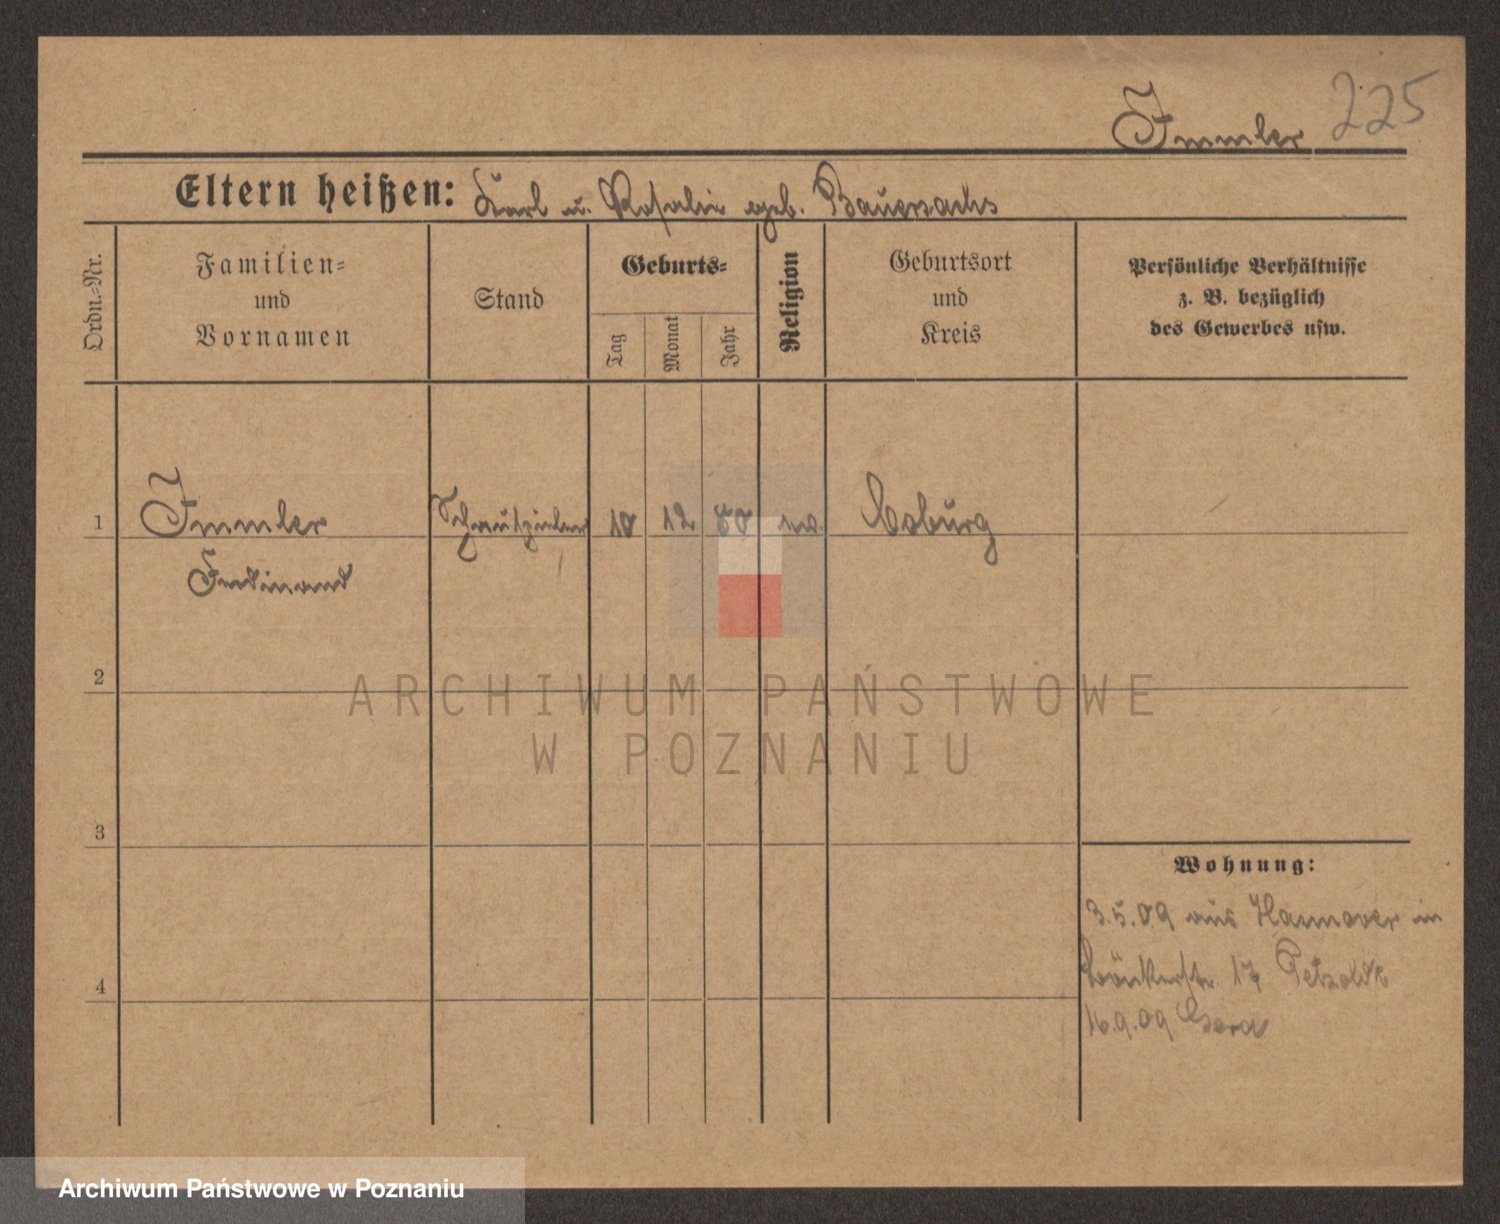 225
Immler
Eltern heißen: Karl u. Rosalie geb. Bauersachs
Ordn.=Nr.
Familien=
und
Vornamen
Stand
Geburts=
Tag
Monat
Jahr
Religion
Geburtsort
und
Kreis
Persönliche Verhältnisse
z. B. bezüglich
des Gewerbes usw.
1 Immler Schauspieler 10 12 80 ev. Coburg
Ferdinand
2
ARCHIWUM PAŃSTWOWE
W POZNANIU
3
Wohnung:
3.5.09 aus Hannover in
17 Petzold
4
16.9.09 Gera
Archiwum Państwowe w Poznaniu